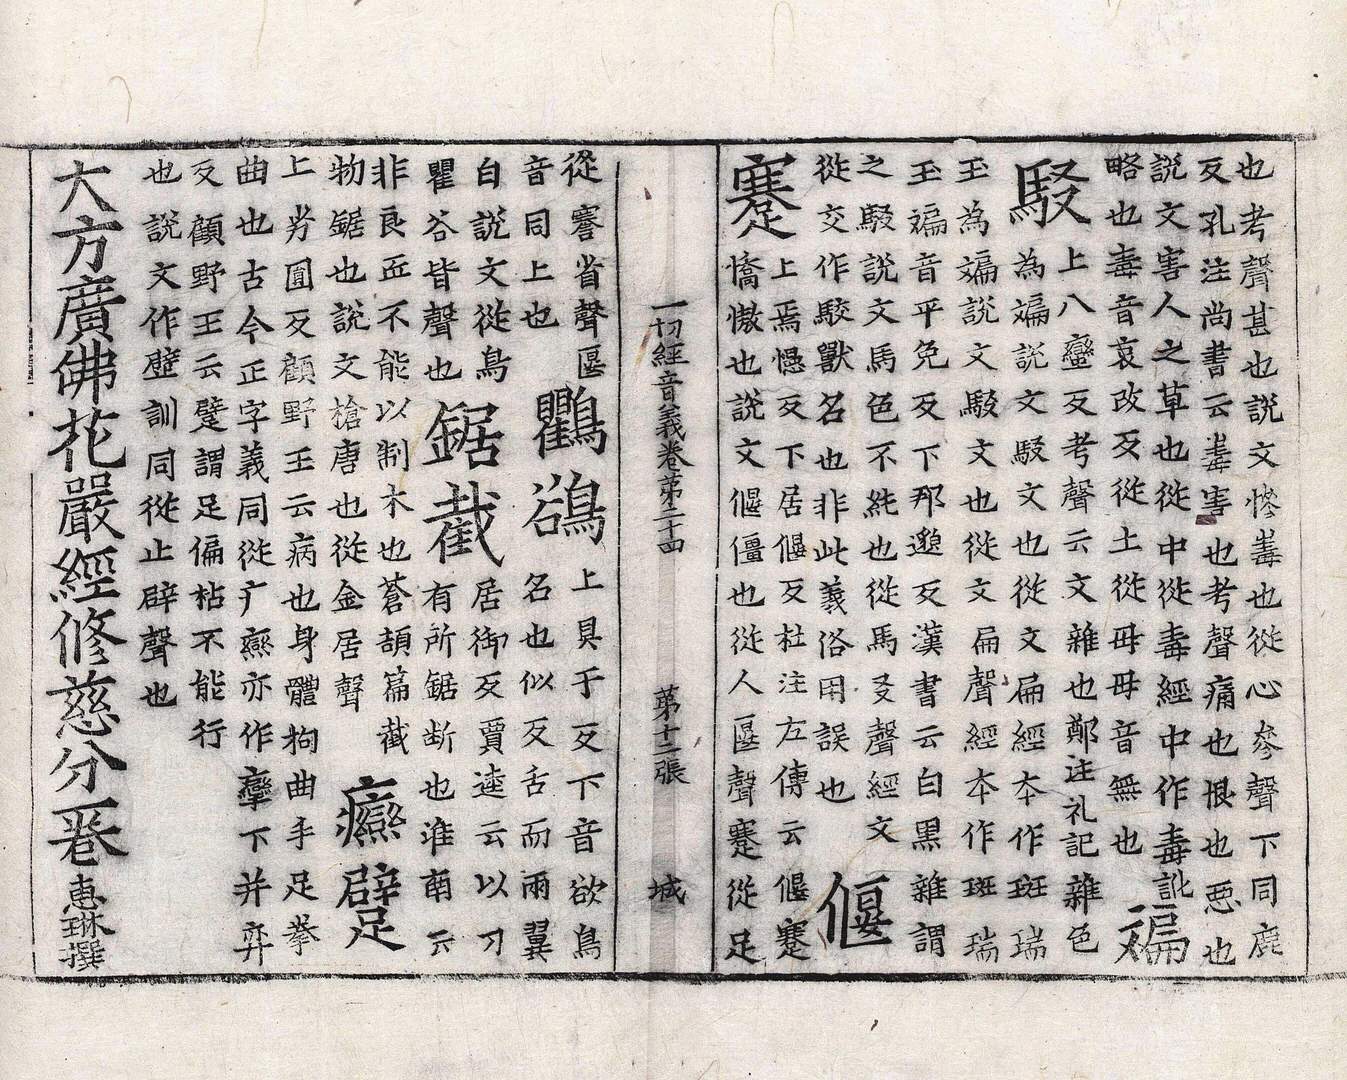 也考聲甚也説文慘毒也從心參聲下同鹿
反孔注尚書云毒害也考聲痛也恨也惡也
説文害人之草也從屮從毒經中作毒訛
略也毒音哀改反從土從毋毋音無也
斒
駁
上八蠻反考聲云文雜也鄭注礼記雜色
為斒説文駁文也從文扁經本作斑瑞
玉為斒説文駁文也從文扁聲經本作斑瑞
玉斒音平免反下邦邈反漢書云白黒雜謂
之駁説文馬色不純也從馬爻聲經文
從交作駮獸名也非此義俗用誤也
偃
蹇
上焉㦥反下居偃反杜注左傳云偃蹇
憍慠也説文偃僵也從人匽聲蹇從足
一切經音義卷第二十四 第十二張 城
從謇省聲匽
音同上也
鸜鵒
上具于反下音欲鳥
名也似反舌而兩翼
白説文從鳥
瞿谷皆聲也
鋸截
居御反賈逵云以刀
有所鋸断也淮南云
非良匠不能以制木也蒼頡篇截
物鋸也説文槍唐也從金居聲
癵躄
上劣圓反顧野王云病也身體拘曲手足拳
曲也古今正字義同從疒䜌亦作攣下并弈
反顧野王云躄謂足偏枯不能行
也説文作壁訓同從止辟聲也
大方廣佛花嚴經修慈分一卷 惠琳撰